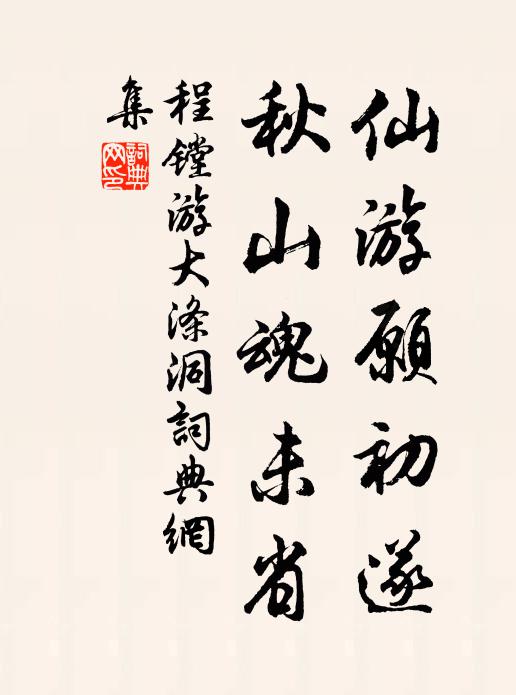 仙游愿初遂
秋山魂未省
程镗游大涤洞詞典網
集
詞典
网印